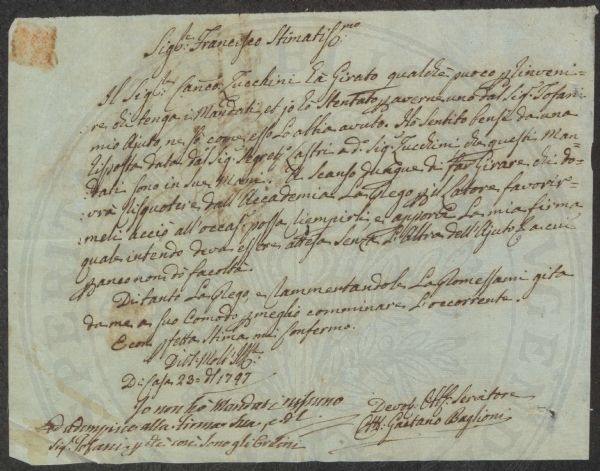 Sig.r Francesco Stimatiss.mo
Il Sig.r Canco Zucchini ha Girato qualche poco p. inveni-
re chi tenga i Mandati, et io ho Stentato p. averne uno dal Sig. Tofani
mio Ajuto, ne so come esso Lo abbia avuto. Ho Sentito bensì da una
risposta data dal Sig. Castri a d. Sig. Zucchini che questi Man-
dati sono in sue Mani. A scanso dunque di far Girare chi do-
vrà riscuotere dall'Accademia La Prego p. il favorir-
meli acciò all'occas. possa riempirli e apporvi La mia firma
quale intendo deva essere attesa Senza L'Altra dell'Ajuto a cui
non dò facoltà.
Di tanto La Prego, e rammentandole La Promessami gita
da me a suo Comodo p. meglio comminare L'occorrente.
E con p.fetta Stima mi Confermo.
Di Casa 23. 1797
Io non ho Mandati nessuno
Sig. Tofani
Devot. Obb. Servitore
Gaetano Baglioni